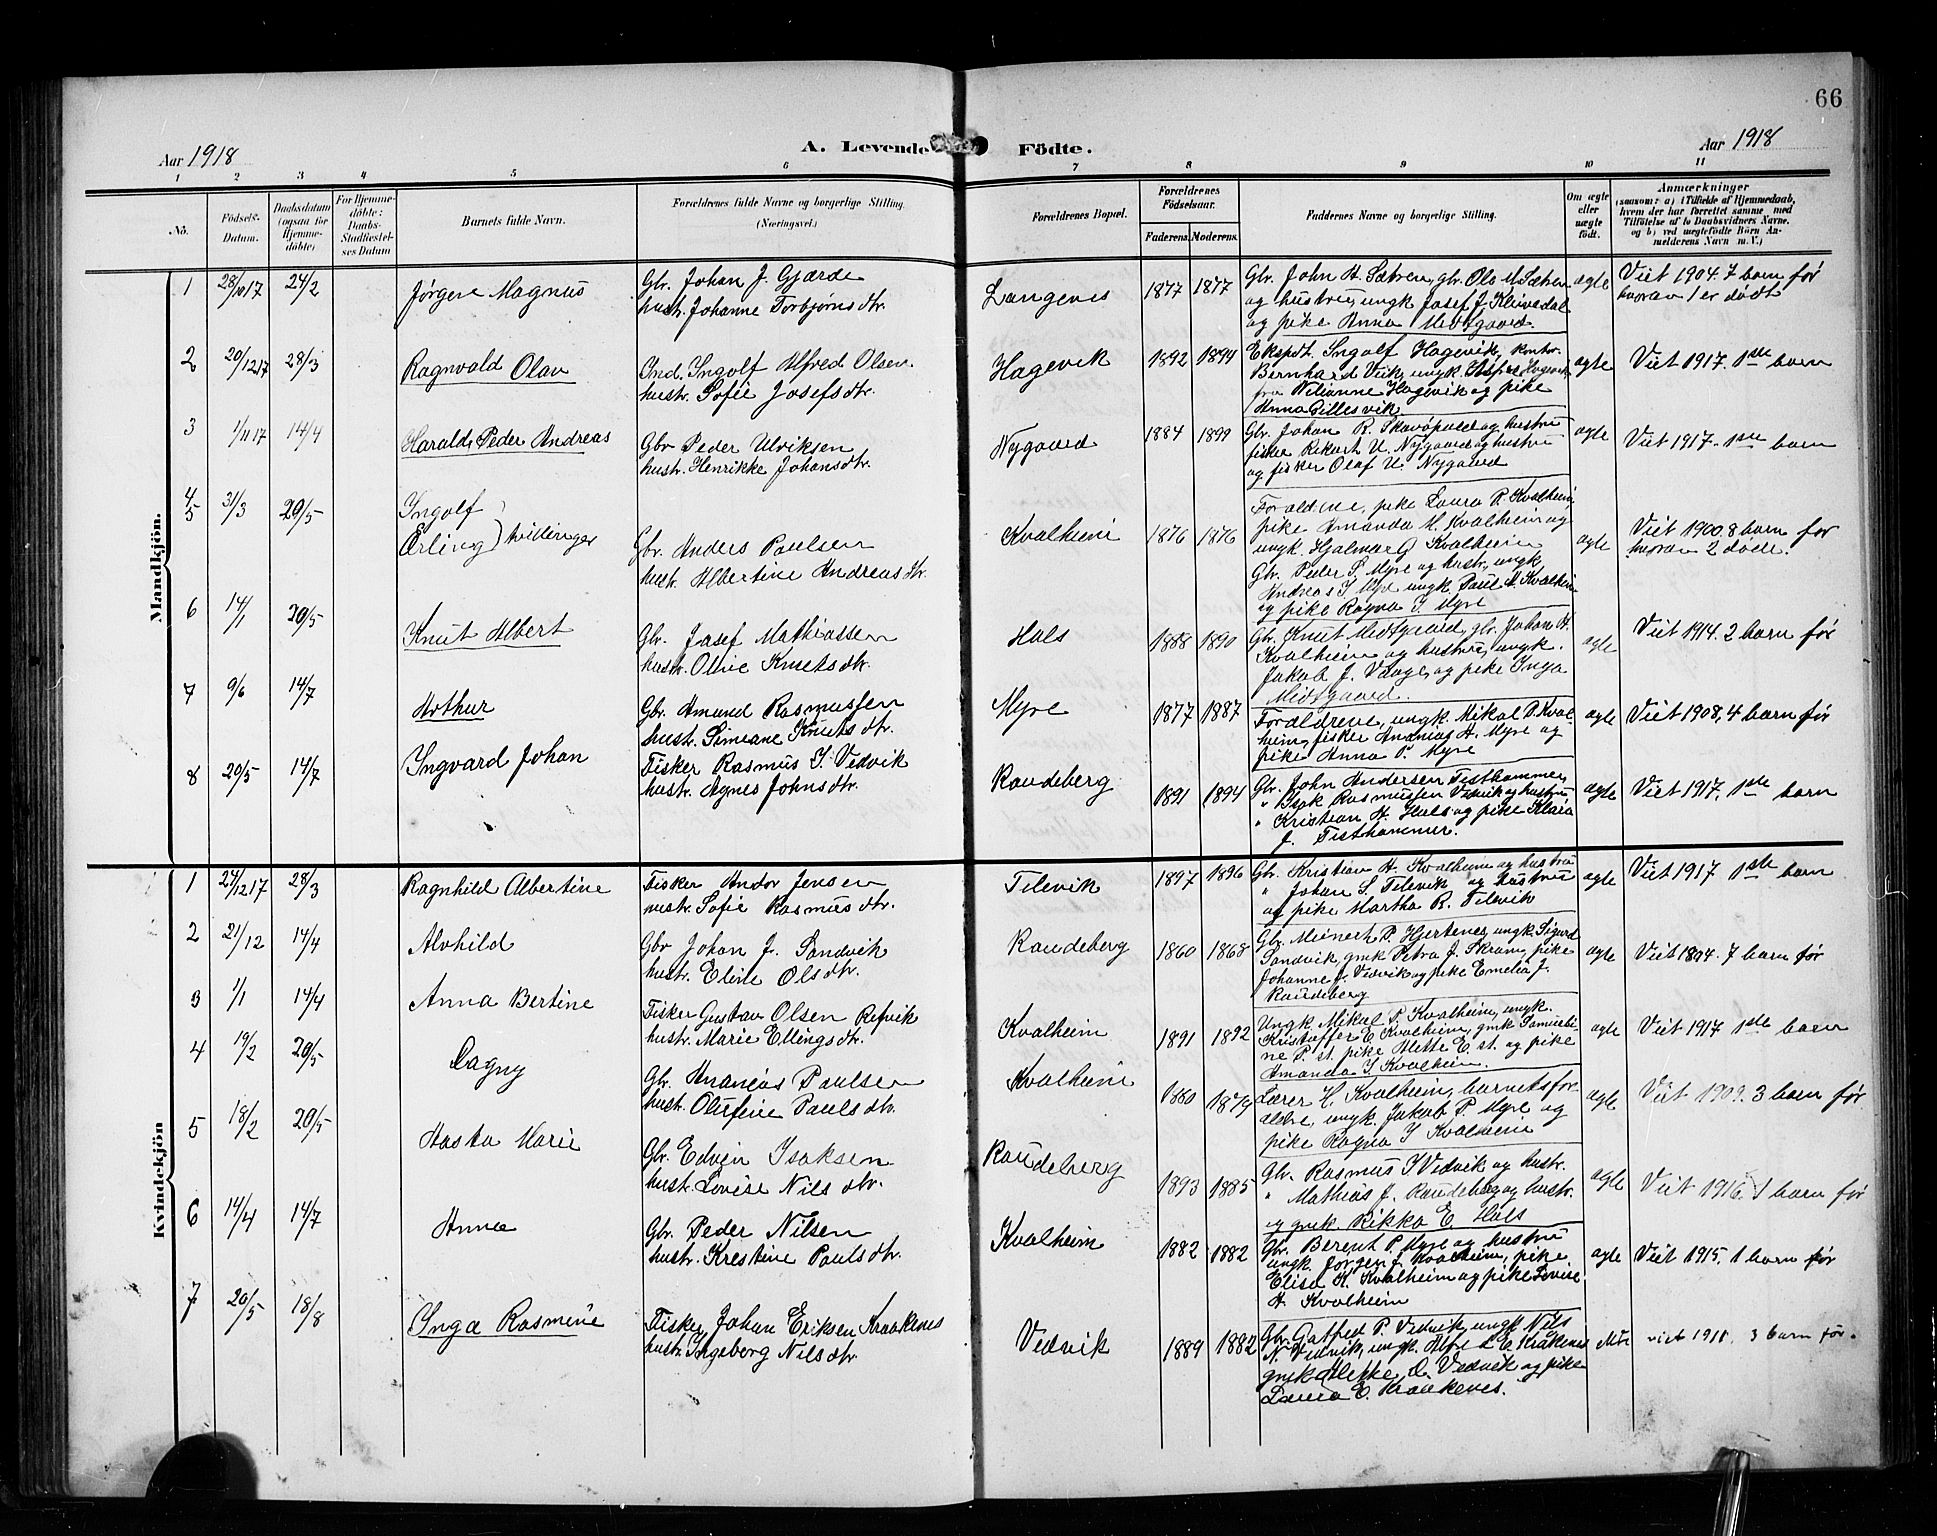 66
Aar 1918
A. Levende Födte.
Aar 1918
1 2 3 4 5 6 7 8 9 10 11
No.
Födsels-Datum.
Daabsdatum (ogsaa for Hjemme-döbte)
For Hjemme-döbte: Daabs-Stadfæstel-ses Datum
Barnets fulde Navn.
Forældrenes fulde Navne og borgerlige Stilling. (Næringsvei.)
Forældrenes Bopæl.
Forældrenes Födselsaar.
Faderens. Moderens.
Faddernes Navne og borgerlige Stilling.
Om ægte eller uægte födt.
Anmærkninger
(saasom: a) i Tilfælde af Hjemmedaab, hvem der har forrettet samme med Tilföielse af to Daabsvidners Navne. og b) ved uægtefödte Börn An-melderens Navn m. V.)
Mandkjön.
1 28/10 17 24/2 Jørgen Magnus
Gbr. Johan J. Gjærde
hustr. Johanne Torbjørnsdtr.
Langenes 1877 1877
Gbr. John H. Sætren, gbr. Ola M Sætren
og hustrue, ungk Josef J. Kleivedal
og pike Anna Midtgaard.
ægte
Viet 1904. 7 barn før
hvorav 1 er dødt
2 20/12 17 28/3 Ragnvald Olav
Ind. Ingolf Alfred Olsen.
hustr. Sofie Josefsdtr.
Hagevik 1892 1894
Ekspdt. Ingolf Hagevik, kontor.
Bernhard Veik, ungk.
fru Nilianne Hagevik og pike
Anna Gillesvik.
ægte
Viet 1917. 1ste barn
3 1/11 17 14/4 Harald Peder Andreas
Gbr Peder Ulriksen
hustr. Henrikke Johansdtr.
Nygaard 1884 1899
Gbr. Johan R. og hustru
fisker Rikart U. Nygaard og hustru
og fisker Olaf U. Nygaard
ægte
Viet 1917. 1ste barn
4
5 31/3 20/5 Ingolf
Erling tvillinger
Gbr. Anders Paulsen
hustr. Albertine Andreasdtr.
Kvalheim 1876 1876
Forældrene, pike Laura P. Kvalheim,
pike Amanda M. Kvalheim og
ungk. Hjalmar G Kvalheim
Gbr. Peder S. Myre og hustr., ungk
Andreas I Myre ungk Paul A. Kvalheim
og pike Ragna I. Myre
ægte
Viet 1900. 8 barn før
hvorav 2 døde.
6 14/1 20/5 Knut Albert
Gbr. Josef Mathiassen
hustr. Oline Knutsdtr.
Hals 1888 1890
Gbr. Knut Midtgaard, gbr. Johan A.
Kvalheim og hustrue, ungk.
Jakob J. Vaage, og pike Inga
Midtgaard.
ægte
Viet 1914. 2 barn før
7 9/6 14/7 Arthur
Gbr. Amund Rasmussen
hustr. Simeane Knutsdtr.
Myre 1877 1887
Forældrene, ungk. Mikal P. Kval-
heim, fisker Ananias A. Myre og
pike Anna P. Myre
ægte
Viet 1908, 4 barn før
8 20/5 14/7 Ingvard Johan
Fisker Rasmus I. Vedvik
hustr. Agnes Johnsdtr.
Raudeberg 1891 1894
Gbr. John Andersen Festhammer,
" Isak Rasmussen Vedvik og hustru
" Kristian A. Hals og pike Klara
J. Festhammer.
ægte
Viet 1917. 1ste barn
Kvindekjön
1 24/12 17 28/3 Ragnhild Albertine
Fisker Andor Jensen
hustr. Sofie Rasmusdtr.
Tilevik 1897 1896
Gbr. Kristian A. Kvalheim og hustru
" Johan S. Tilevik og hustrue
og pike Martha R. Tilevik
ægte
Viet 1917 1ste barn
2 21/12 14/4 Alvhild
Gbr Johan J. Sandvik
hustr. Eline Olsdtr.
Raudeberg 1860 1868
Gbr. Meinert P. Hjertenes, ungk. Sigurd
Sandvik, gmk Petra J. Skram, pike
Johanne J. Vedvik og pike Emelia J.
Raudeberg
ægte
Viet 1894. 7 barn før
3 1/1 14/4 Anna Bertine
Fisker Gustav Olsen Refvik
hustr. Marie Ellingsdtr.
Kvalheim 1891 1892
Ungk. Mikal P. Kvalheim, ungk.
Kristoffer E. Kvalheim, gmk Samueli-
ne P. st. pike Alette E. st. og pike
Amanda I. Kvalheim.
ægte
Viet 1917 1ste barn
4 19/2 20/5 Dagny
Gbr. Ananias Paulsen
hustr. Olufine Paulsdtr.
Kvalheim 1880 1879
Lærer H. Kvalheim, barnetsfor-
ældre, ungk. Jakob P. Myre og
pike Ragna I Kvalheim
ægte
Viet 1909. 3 barn før
5 18/2 20/5 Aasta Marie
Gbr. Edvin Isaksen
hustr. Lovise Nilsdtr.
Raudeberg 1893 1885
Gbr. Rasmus I Vedvik og hustr.
" Mathias J. Raudeberg og hustr.
og gmk. Rikka E. Hals
ægte
Viet 1916. 1 barn før
6 14/4 14/7 Anna
Gbr. Peder Nilsen
hustr. Kristine Paulsdtr.
Kvalheim 1882 1882
Gbr. Berent P. Myre og hustru
ungk. Jørgen J. Kvalheim, pike
Elisa K. Kvalheim og pike Lovise
A. Kvalheim
ægte
Viet 1915. 1 barn før
7 20/5 18/8 Inga Rasmine
Fisker Johan Eriksen Kraakenes
hustr. Ingeborg Nilsdtr.
Vedvik 1889 1882
Gbr. Gotfred P. Vedvik, ungk Nils
N. Vedvik, ungk. Alfred E. Kråkenes
gmk Alette O. Vedvik og pike
Laura E. Kraakenes.
viet 1911. 3 barn før.